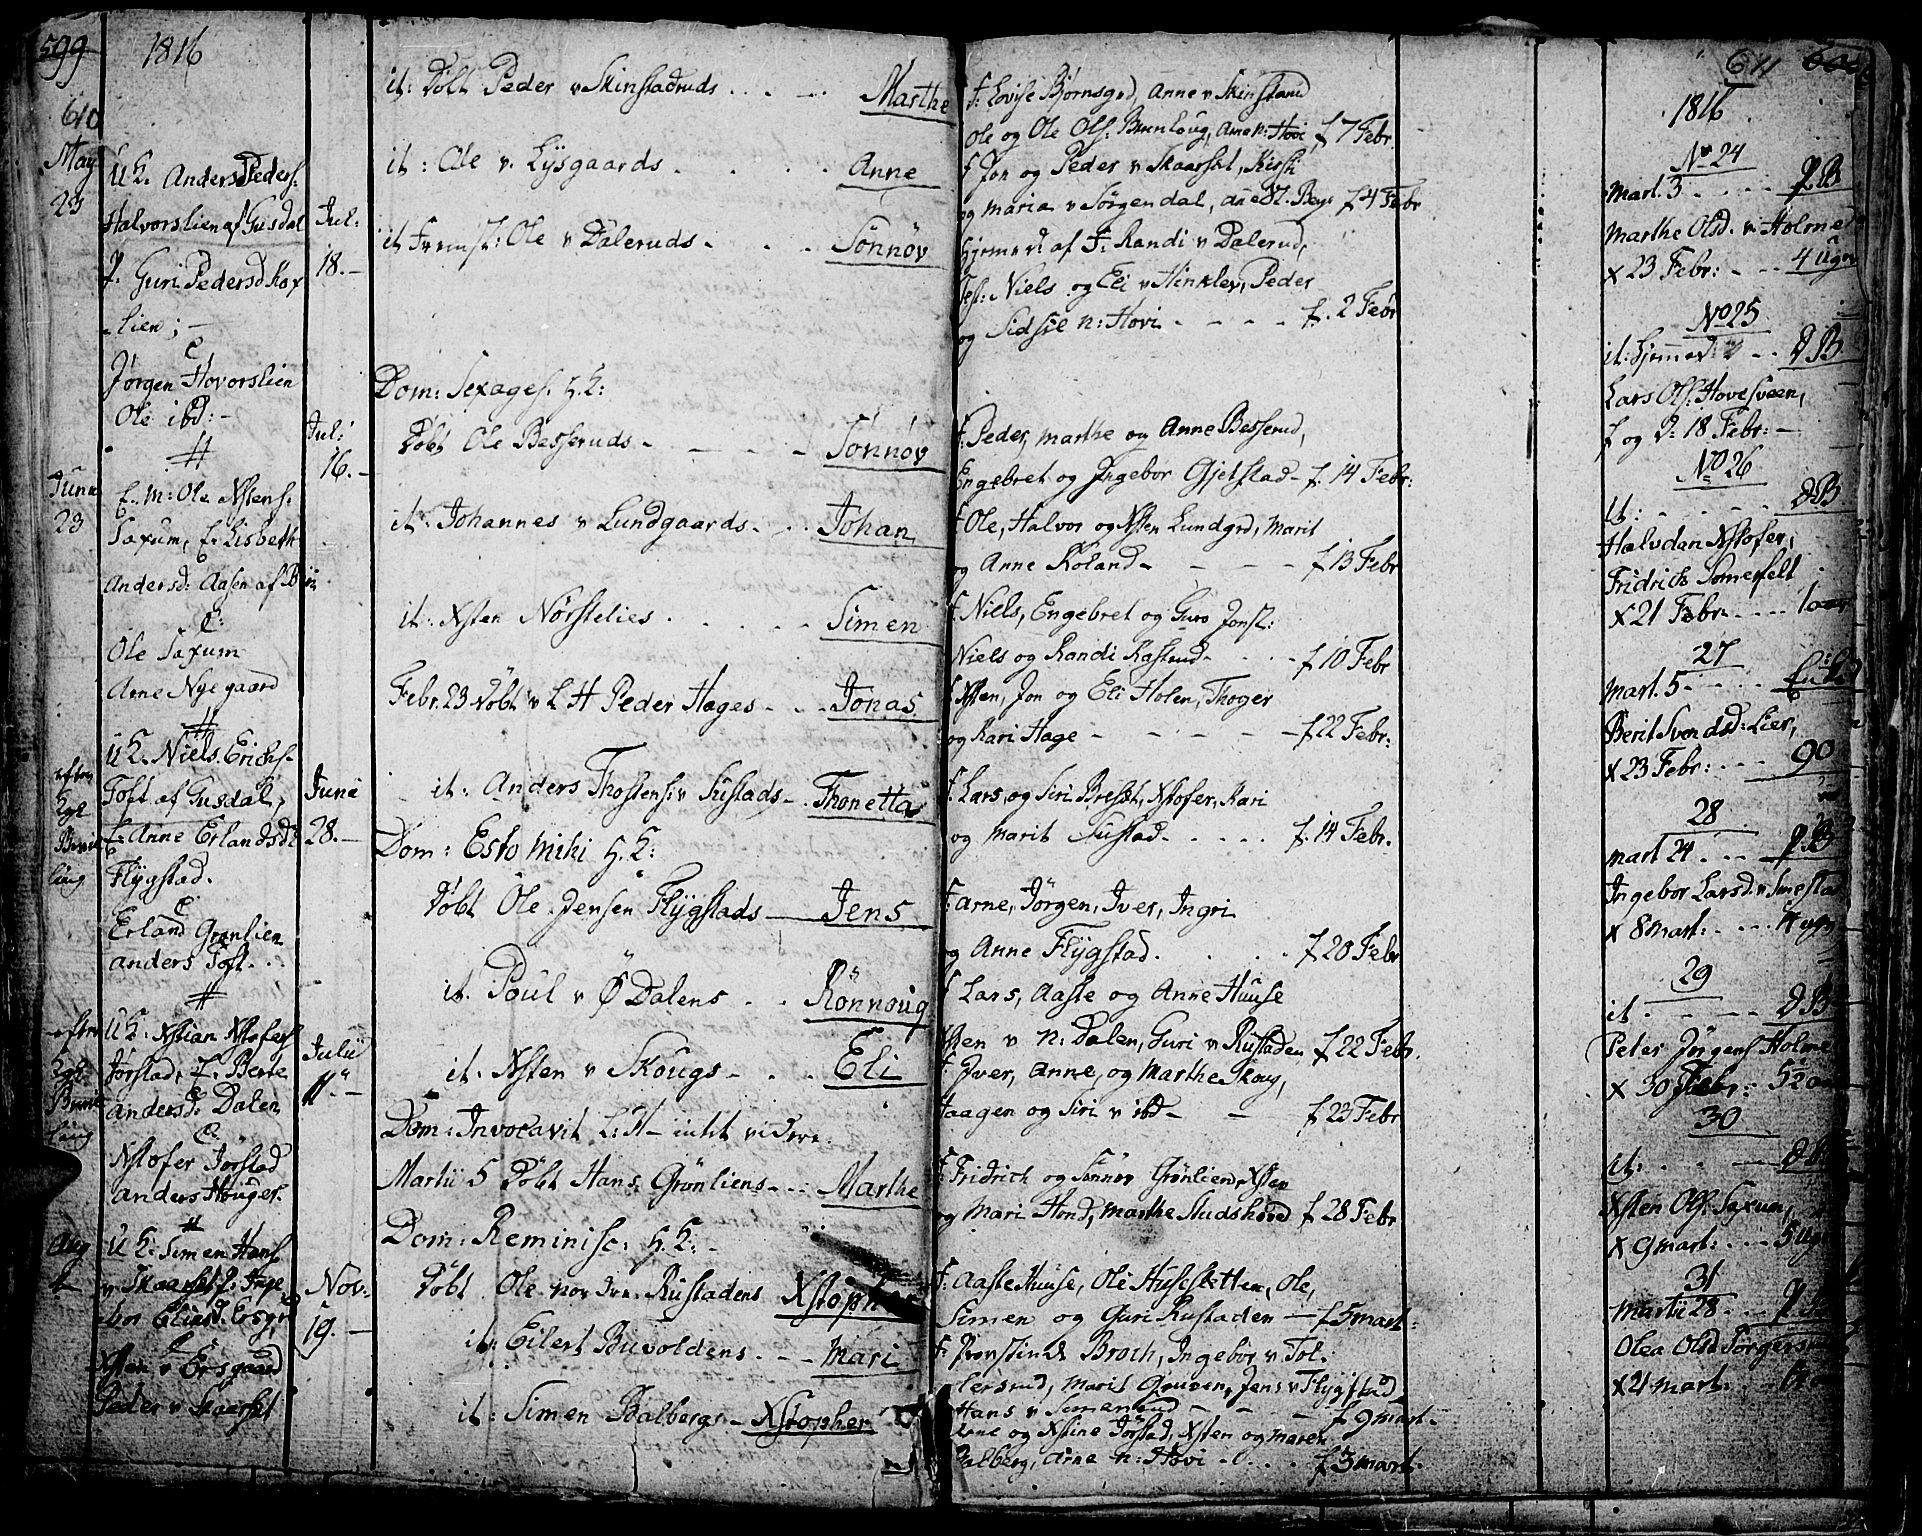 599
1816
610
May
23
U K. Anders Peders.
Halvorslien af Gusdal
P. Guri Pedersd Hox
lien; -
C
Jørgen Hovorslien
Ole ibd: -
#
Jul:
18. -
June
23
E. M: Ole Xstens.
Saxum, E. Lisbeth
Andersd: Aasen af
C:
Ole Saxum
Arne Nyegaard
#
Jul:
16. -
U K. Niels Erichs.
Toft af Gusdal,
E. Anne Erlandsd:
Flygstad.
C.
Erland Grønlien
anders Toft. . .
#
June
28. -
efter
Kgl
U K. Xstian Xstofers
Jørstad, E. Berte
andersd: Dalen
C.
Xstofer Jørstad
anders Houger.
#
Julii
11. -
Aug
U K: Simen Hans
v Skaarset P: Inge
bor Eliasd. Ersgrd
C
Xsten v Ersgaard
Peder v Skaarset
Nov:
19. -
it: Døbt Peder v Skinstadruds . . . - . Marthe
it: Ole v. Lysgaards . . . . . Anne
it Fremst: Ole v Daleruds - . . . Sønnøv
Dom: Sexages. H. K:
Døbt Ole Besseruds - - - - - Sønnøv
it: Johannes v Lundgaards - . . Johan
it: Xsten Nørstelies . . . . . Simen
Febr. 23 Døbt v L H Peder Hages - . . Jonas
it: Anders Thostens: v Sustads - . Thonetta
Dom: Esto Mihi H. K:
Døbt Ole Jensen Flygstads - Jens
it. Poul v Ø Dalens . . . Rönnoug
it. Xsten v Skougs - . . Eli
Dom: Invocavit L: H - intet videre.
Martii 5 Døbt Hans Grönliens - . . Marthe
Dom: Reminisc: H. K: -
Døbt Ole nordre Rustadens Xstopher
it: Eilert Buvoldens . . - Mari
it: Simen Balbergs - Xstopher
F: Lovise Bjørnsgrd, Anne v Skinstad
Ole og Ole Ols: Brunloug, Arne n: Hovi f 7 Febr.
F Jon og Peder v Skaarset, Kirsti
og Maria v Sörgendal, f 4 Febr
hjemmed af F: Randi v Dalerud,
Test: Niels og Eli v Hinklev, Peder
og Sidsel n: Hovi - - - - f. 2 Febr
F. Peder, Marthe og Anne Besserud,
Engebret og Ingebor Gjetstad - f. 14 Febr:
F Ole, Halvor og Xsten Lundgrd, Marit
og Anne Roland - - - - f 13 Febr
F. Niels, Engebret og Guro Jonst:
Niels og Randi Rastrud - . . - f 10 Febr
F Xsten, Jon og Eli Holen, Thoger
og Kari Hage - - - - - f 22 Febr:
F. Lars, og Siri Breset, Xstofer, Kari
og Marit Sustad - . . . . f. 14 Febr.
F: Arne, Jörgen, Iver, Ingri
og Anne Flygstad. . . . . f 20 Febr
F Lars, Aaste og Anne Huuse
Xsten v n: Dalen, Guri v Rustaden f 22 Febr.
F Iver, Anne, og Marthe Skoug,
Haagen og Siri v ibd - - f 23 Febr
F. Fridrich og Sönnøv Grönlien, Xsten
og Mari Hond, Marthe Studshoved f 28 Febr
F. Aaste Huuse, Oli Husesletten, Ole,
Simen og Guri Rustaden - f 5 mart:
F: Provstinde Broch, Ingebor v Tol-
lersrud, Marit Gruven, Jens v Flygstad,
Hans v Simensrud - - - f 9 mart.
Arne og Xstine Jörstad, Xsten og Maren
Balberg, Arne n: Hovi . . . f 3 mart.
611 600
1816
No 24
Mart. 3 . . . . P. B
Marthe Olsd. v Holme
X 23 Febr: - - 4 Uger
No 25
it: hjemmed: . . D B
Lars Ols: Hovesveen,
f og D: 18 Febr: -
No 26
it: . . . . . D B
Halvdan Xstofer,
Fridrich Somerfelt
X 21 Febr: . . . 1 aar
27
Mart. 5 . . . .
Berit Svendsd: Lier,
X 23 Febr: . . 90
28
Mart 24 . . . P. B
Ingebor Larsd. v Smestad
X 8 Mart: . . . 4 uger
29
it . . . . . D B
Peter Jörgens Holme
X 30 Febr: 52 aar
30
it: . . . . D B
Xsten Ols. Saxum,
X 9 mart: . . . 5 Uger
31
Martii 28 . . P B
Olea Olsd Torgers
X 21 mart: